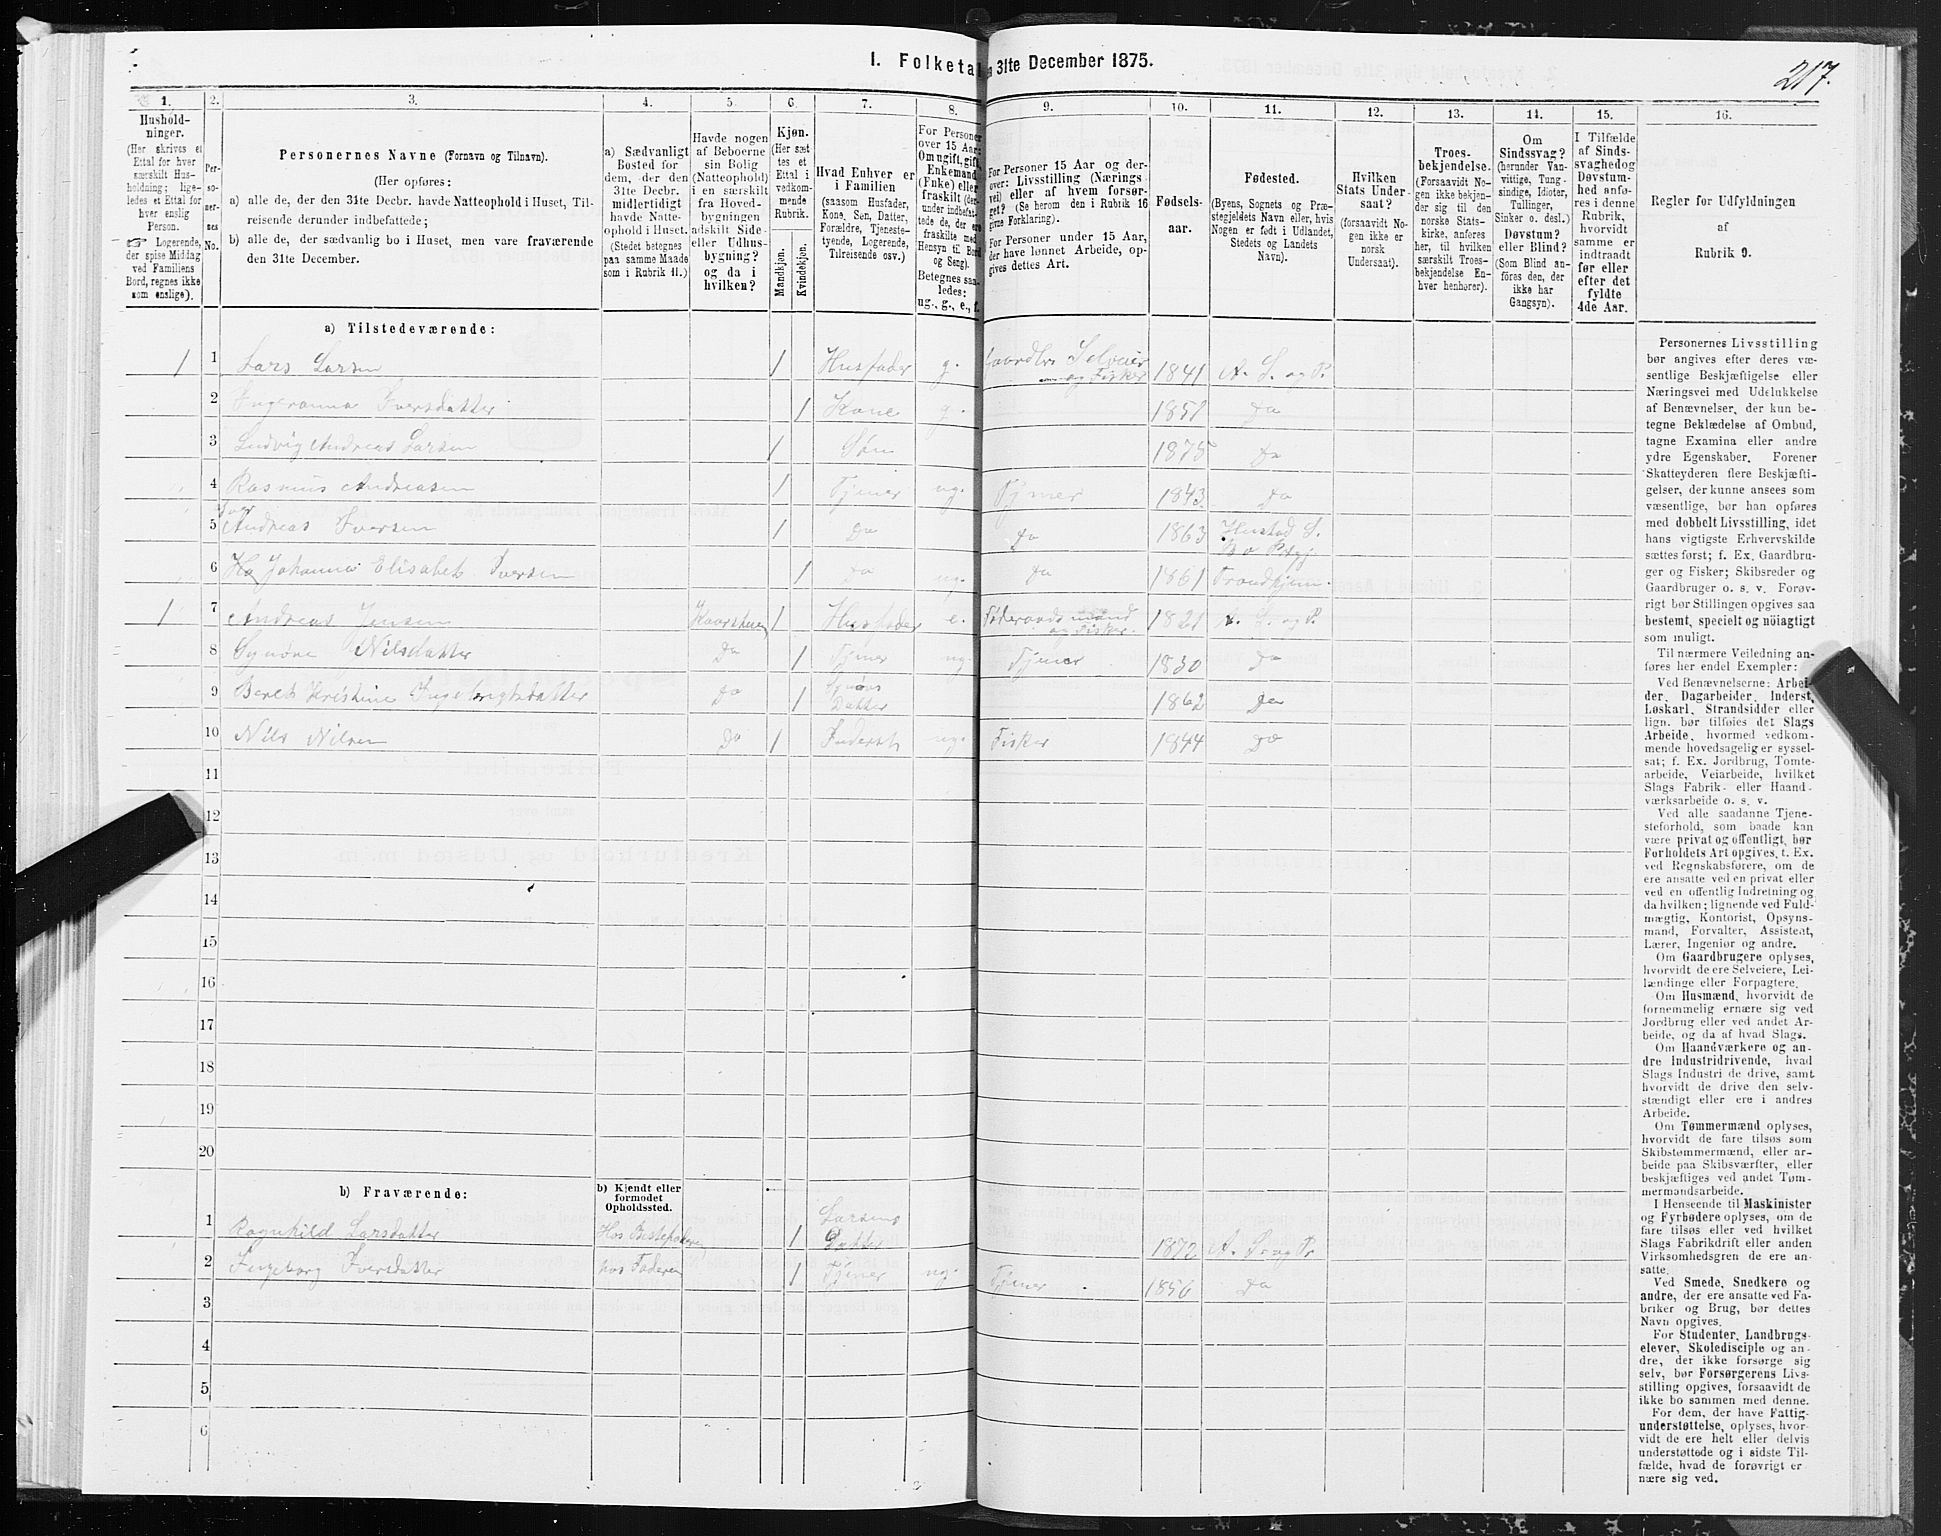 I. Folketal
31te December 1875.
217.
1. 2. 3. 4. 5. 6. 7. 8. 9. 10. 11. 12. 13. 14. 15. 16.
Husholdninger.
(Her skrives et Ettal for hver særskilt Husholdning; ligeledes et Ettal for hver enslig Person.
☞ Logerende, der spise Middag ved Familiens Bord, regnes ikke som enslige).
Personernes No.
Personernes Navne (Fornavn og Tilnavn).
(Her opføres:
a) alle de, der den 31te Decbr. havde Natteophold i Huset, Tilreisende derunder indbefattede;
b) alle de, der sædvanlig bo i Huset, men vare fraværende den 31te December.
a) Sædvanligt Bosted for dem, der den 31te Decbr. midlertidigt havde Natteophold i Huset.
(Stedet betegnes paa samme Maade som i Rubrik 11.)
Havde nogen af Beboerne sin Bolig (Natteophold) i en særskilt fra Hovedbygningen adskilt Side- eller Udhusbygning? og da i hvilken?
Kjøn.
(Her sættes et Ettal i vedkommende Rubrik.
Mandkjøn.
Kvindekjøn.
Hvad Enhver er i Familien
(saasom Husfader, Kone, Søn, Datter, Forældre, Tjenestetyende, Logerende, Tilreisende osv.)
For Personer over 15 Aar: Om ugift, gift, Enkemand (Enke) eller fraskilt (derunder indbefattede de, der ere fraskilte med Hensyn til Bord og Seng).
Betegnes saaledes: ug., g., e., f.
For Personer 15 Aar og derover: Livsstilling (Næringsvei) eller af hvem forsørget? (Se herom den i Rubrik 16 givne Forklaring).
For Personer under 15 Aar, der have lønnet Arbeide, opgives dettes Art.
Fødselsaar.
Fødested.
(Byens, Sognets og Præstegjeldets Navn eller, hvis Nogen er født i Udlandet, Stedets og Landets Navn).
Hvilken Stats Undersaat?
(forsaavidt Nogen ikke er norsk Undersaat).
Troesbekjendelse.
(Forsaavidt Nogen ikke bekjender sig til den norske Statskirke, anføres her, til hvilken særskilt Troesbekjendelse Enhver henhører).
Om Sindssvag? (herunder Vanvittige, Tungsindige, Idioter, Tullinger, Sinker o. desl.) Døvstum? eller Blind? (Som Blind anføres den, der ikke har Gangsyn).
I Tilfælde af Sindssvaghed og Døvstumhed anføres i denne Rubrik, hvorvidt samme er indtraadt før eller efter det fyldte 4de Aar.
Regler for Udfyldningen
af
Rubrik 9.
a) Tilstedeværende:
1 1 Lars Larsen 1 Husfader g. Gaardbr. Selveier og Fisker 1841 A. S. og P.
2 Ingeranna Iversdatter 1 Kone g. 1851 Do
3 Ludvig Andreas Larsen 1 Søn 1875 Do
4 Rasmus Andreasen 1 Tjener ug. Tjener 1843 Do
5 Iver Andreas Iversen 1 Do Do 1863 Hustad S.
6 Johanna Elisabet Iversen 1 Do ug. Do 1861 Trondhjem.
1 7 Andreas Jensen Kaarstuen 1 Husfader e. Føderaadsmand og Fisker. 1821 A. S. og P.
8 Synøve Nilsdatter Do 1 Tjener ug. Tjener 1830 Do
9 Beret Kristine Ingebrigtsdatter Do 1 Synøves Datter 1862 Do
10 Nils Nilsen Do 1 Inderst ug. Fisker 1844 Do
11
12
13
14
15
16
17
18
19
20
b) Fraværende:
b) Kjendt eller formodet Opholdssted.
1 Ragnhild Larsdatter Hos Bestefaderen 1 Larsens Datter 1872 A. S. og P.
2 Ingeborg Iversdatter hos Faderen 1 Tjener ug. Tjener 1856 Do
3
4
5
6
Personernes Livsstilling
bør angives efter deres væ-
sentlige Beskjæftigelse eller
Næringsvei med Udelukkelse
af Benævnelser, der kun be-
tegne Beklædelse af Ombud,
tagne Examina eller andre
ydre Egenskaber. Forener
Skatteyderen flere Beskjæfti-
gelser, der kunne ansees som
væsentlige, bør han opføres
med dobbelt Livsstilling, idet
hans vigtigste Erhvervskilde
sættes først; f. Ex. Gaardbru-
ger og Fisker; Skibsreder og
Gaardbruger o. s. v. Forøv-
rigt bør Stillingen opgives saa
bestemt, specielt og nöiagtigt
som muligt.
Til nærmere Veiledning an-
føres her endel Exempler:
Ved Benævnelserne: Arbei-
der, Dagarbeider, Inderst,
Løskarl, Strandsidder eller
lign. bør tilføies det Slags
Arbeide, hvormed vedkom-
mende hovedsagelig er syssel-
sat; f. Ex. Jordbrug, Tomte-
arbeide, Veiarbeide, hvilket
Slags Fabrik- eller Haand-
værksarbeide o. s. v.
Ved alle saadanne Tjene-
steforhold, som baade kan
være privat og offentligt, bør
Forholdets Art opgives, t. Ex.
ved Regnskabsførere, om de
ere ansatte ved en privat eller
ved en offentlig Indretning og
da hvilken; lignende ved Fuld-
mægtig, Kontorist, Opsyns-
mand, Forvalter, Assistent,
Lærer, Ingeniør og andre.
Om Gaardbrugere oplyses,
hvorvidt de ere Selveiere, Lei-
lændinge eller Forpagtere.
Om Husmænd, hvorvidt de
fornemmelig ernære sig ved
Jordbrug eller ved andet Ar-
beide, og da af hvad Slags.
Om Haandværkere og an-
dre Industridrivende, hvad
Slags Industri de drive, samt
hvorvidt de drive den selv-
stændigt eller ere i andres
Arbeide.
Om Tømmermænd oplyses,
hvorvidt de fare tilsøs som
Skibstømmermænd, eller ar-
beide paa Skibsværfter, eller
beskjæftiges ved andet Tøm-
mermandsarbeide.
I Henseende til Maskinister
og Fyrbødere oplyses, om de
fare tilsøs eller ved hvilket
Slags Fabrikdrift eller anden
Virksomhedsgren de ere an-
satte.
Ved Smede, Snedkere og
andre, der ere ansatte ved Fa-
briker og Brug, bør dettes
Navn opgives.
For Studenter, Landbrugs-
elever, Skoledisciple og an-
dre, der ikke forsørge sig
selv, bør Forsørgerens Livs-
stilling opgives, forsaavidt de
ikke bo sammen med denne.
For dem, der have Fattig-
understøttelse, oplyses, hvor-
vidt de ere helt eller delvis
understøttede og i sidste Til-
fælde, hvad de forøvrigt er-
nære sig ved.